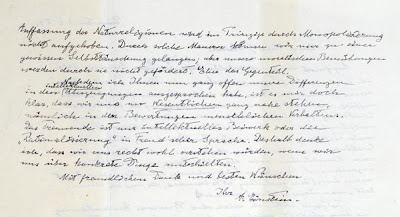 Auffassung der Naturreligionen wird im Prinzip durch Monopolisierung
nicht aufgehoben. Durch solche Mauern können wir nur zu einer
gewissen Selbsttäuschung gelangen, aber unsere moralischen Bemühungen
werden durch sie nicht gefördert. Eher das Gegenteil.
Nachdem ich Ihnen nun ganz offen unsere Differenzen
in den intellektuellen Überzeugungen ausgesprochen habe, ist es mir doch
klar, dass wir uns im Wesentlichen ganz nahe stehen,
nämlich in den Bewertungen menschlichen Verhaltens.
Das Trennende ist nur intellektuelles Beiwerk oder die
„Rationalisierung" in Freud'scher Sprache. Deshalb denke
ich, dass wir uns recht wohl verstehen würden, wenn wir
uns über konkrete Dinge unterhielten.
Mit freundlichem Dank und besten Wünschen
Ihr
A. Einstein.